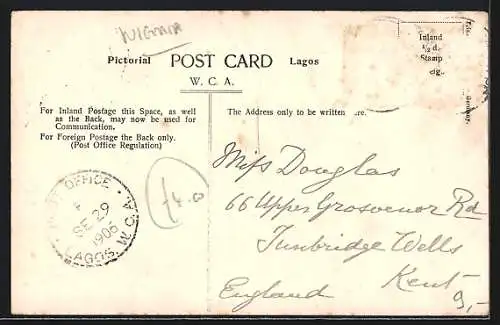 NIGERIA
Pictorial POST CARD Lagos
W. C. A.
For Inland Postage this Space, as well
as the Back, may now be used for
Communication.
For Foreign Postage the Back only.
(Post Office Regulation)
The Address only to be written ere.
Inland
½ d.
Stamp
Germany.
OFFICE
SE 29
1906
LAGOS W.C.A.
£4.0
Miss Douglas
66 Upper Grosvenor Rd
Tunbridge Wells
Kent
England
9,-